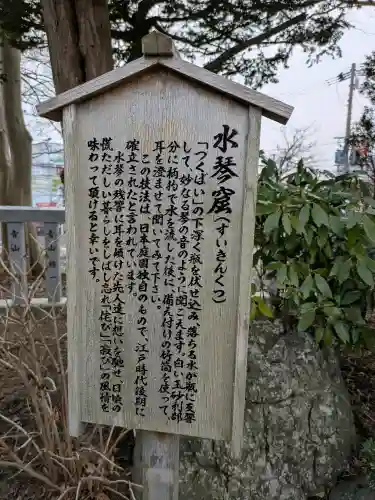 水琴窟(すいきんくつ)
「つくばい」の下深く瓶を伏せ込み、落ちる水が瓶に反響
して、妙なる琴の音のように聞こえます。白い玉砂利部
分に柄杓で水を流した後に、備え付けの竹筒を使って
耳を澄ませて聞いてみて下さい。
この技法は、日本庭園独自のもので、江戸時代後期に
確立されたと言われています。
水琴の残響に耳を傾けた先人達に想いを馳せ、日頃の
慌ただしい暮らしをしばし忘れ「侘び」「寂び」の風情を
味わって頂けると幸いです。
青山
青山